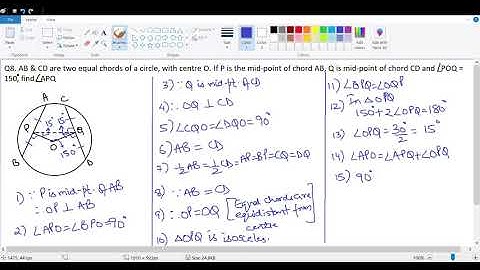 Q8. AB & CD are two equal chords of a circle, with centre O. If P is the mid-point of chord AB, Q is mid-point of chord CD and ∠POQ =
150°, find ∠APQ.
A C
P 15° 15° Q
O
150°
B D
1) ∵ P is mid-pt. of AB
∴ OP ⊥ AB
2) ∠APO = ∠BPO = 90°
3) ∵ Q is mid-pt of CD
4) ∴ OQ ⊥ CD
5) ∠CQO = ∠DQO = 90°
6) AB = CD
7) ½AB = ½CD ⇒ AP = BP = CQ = DQ
8) ∵ AB = CD
9) ∴ OP = OQ [Equal chords are
equidistant from
centre
10) △OPQ is isosceles.
11) ∠OPQ = ∠OQP
12) In △OPQ
150° + 2∠OPQ = 180°
13) ∠OPQ = 30°/2 = 15°
14) ∠APO = ∠APQ + ∠OPQ
15) 90°